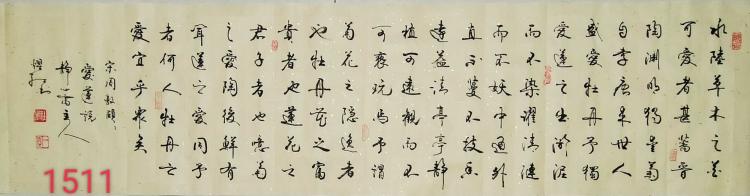 水陸草木之花
可愛者甚蕃晉
陶淵明獨愛菊
自李唐來世人
盛愛牡丹予獨
愛蓮之出淤泥
而不染濯清漣
而不妖中通外
直不蔓不枝香
遠益清亭亭靜
植可遠觀而不
可褻玩焉予謂
菊花之隱逸者
也牡丹花之富
貴者也蓮花之
君子者也噫菊
之愛陶後鮮有
聞蓮之愛同予
者何人牡丹之
愛宜乎衆矣
宋周敦頤
愛蓮說
主人
1511